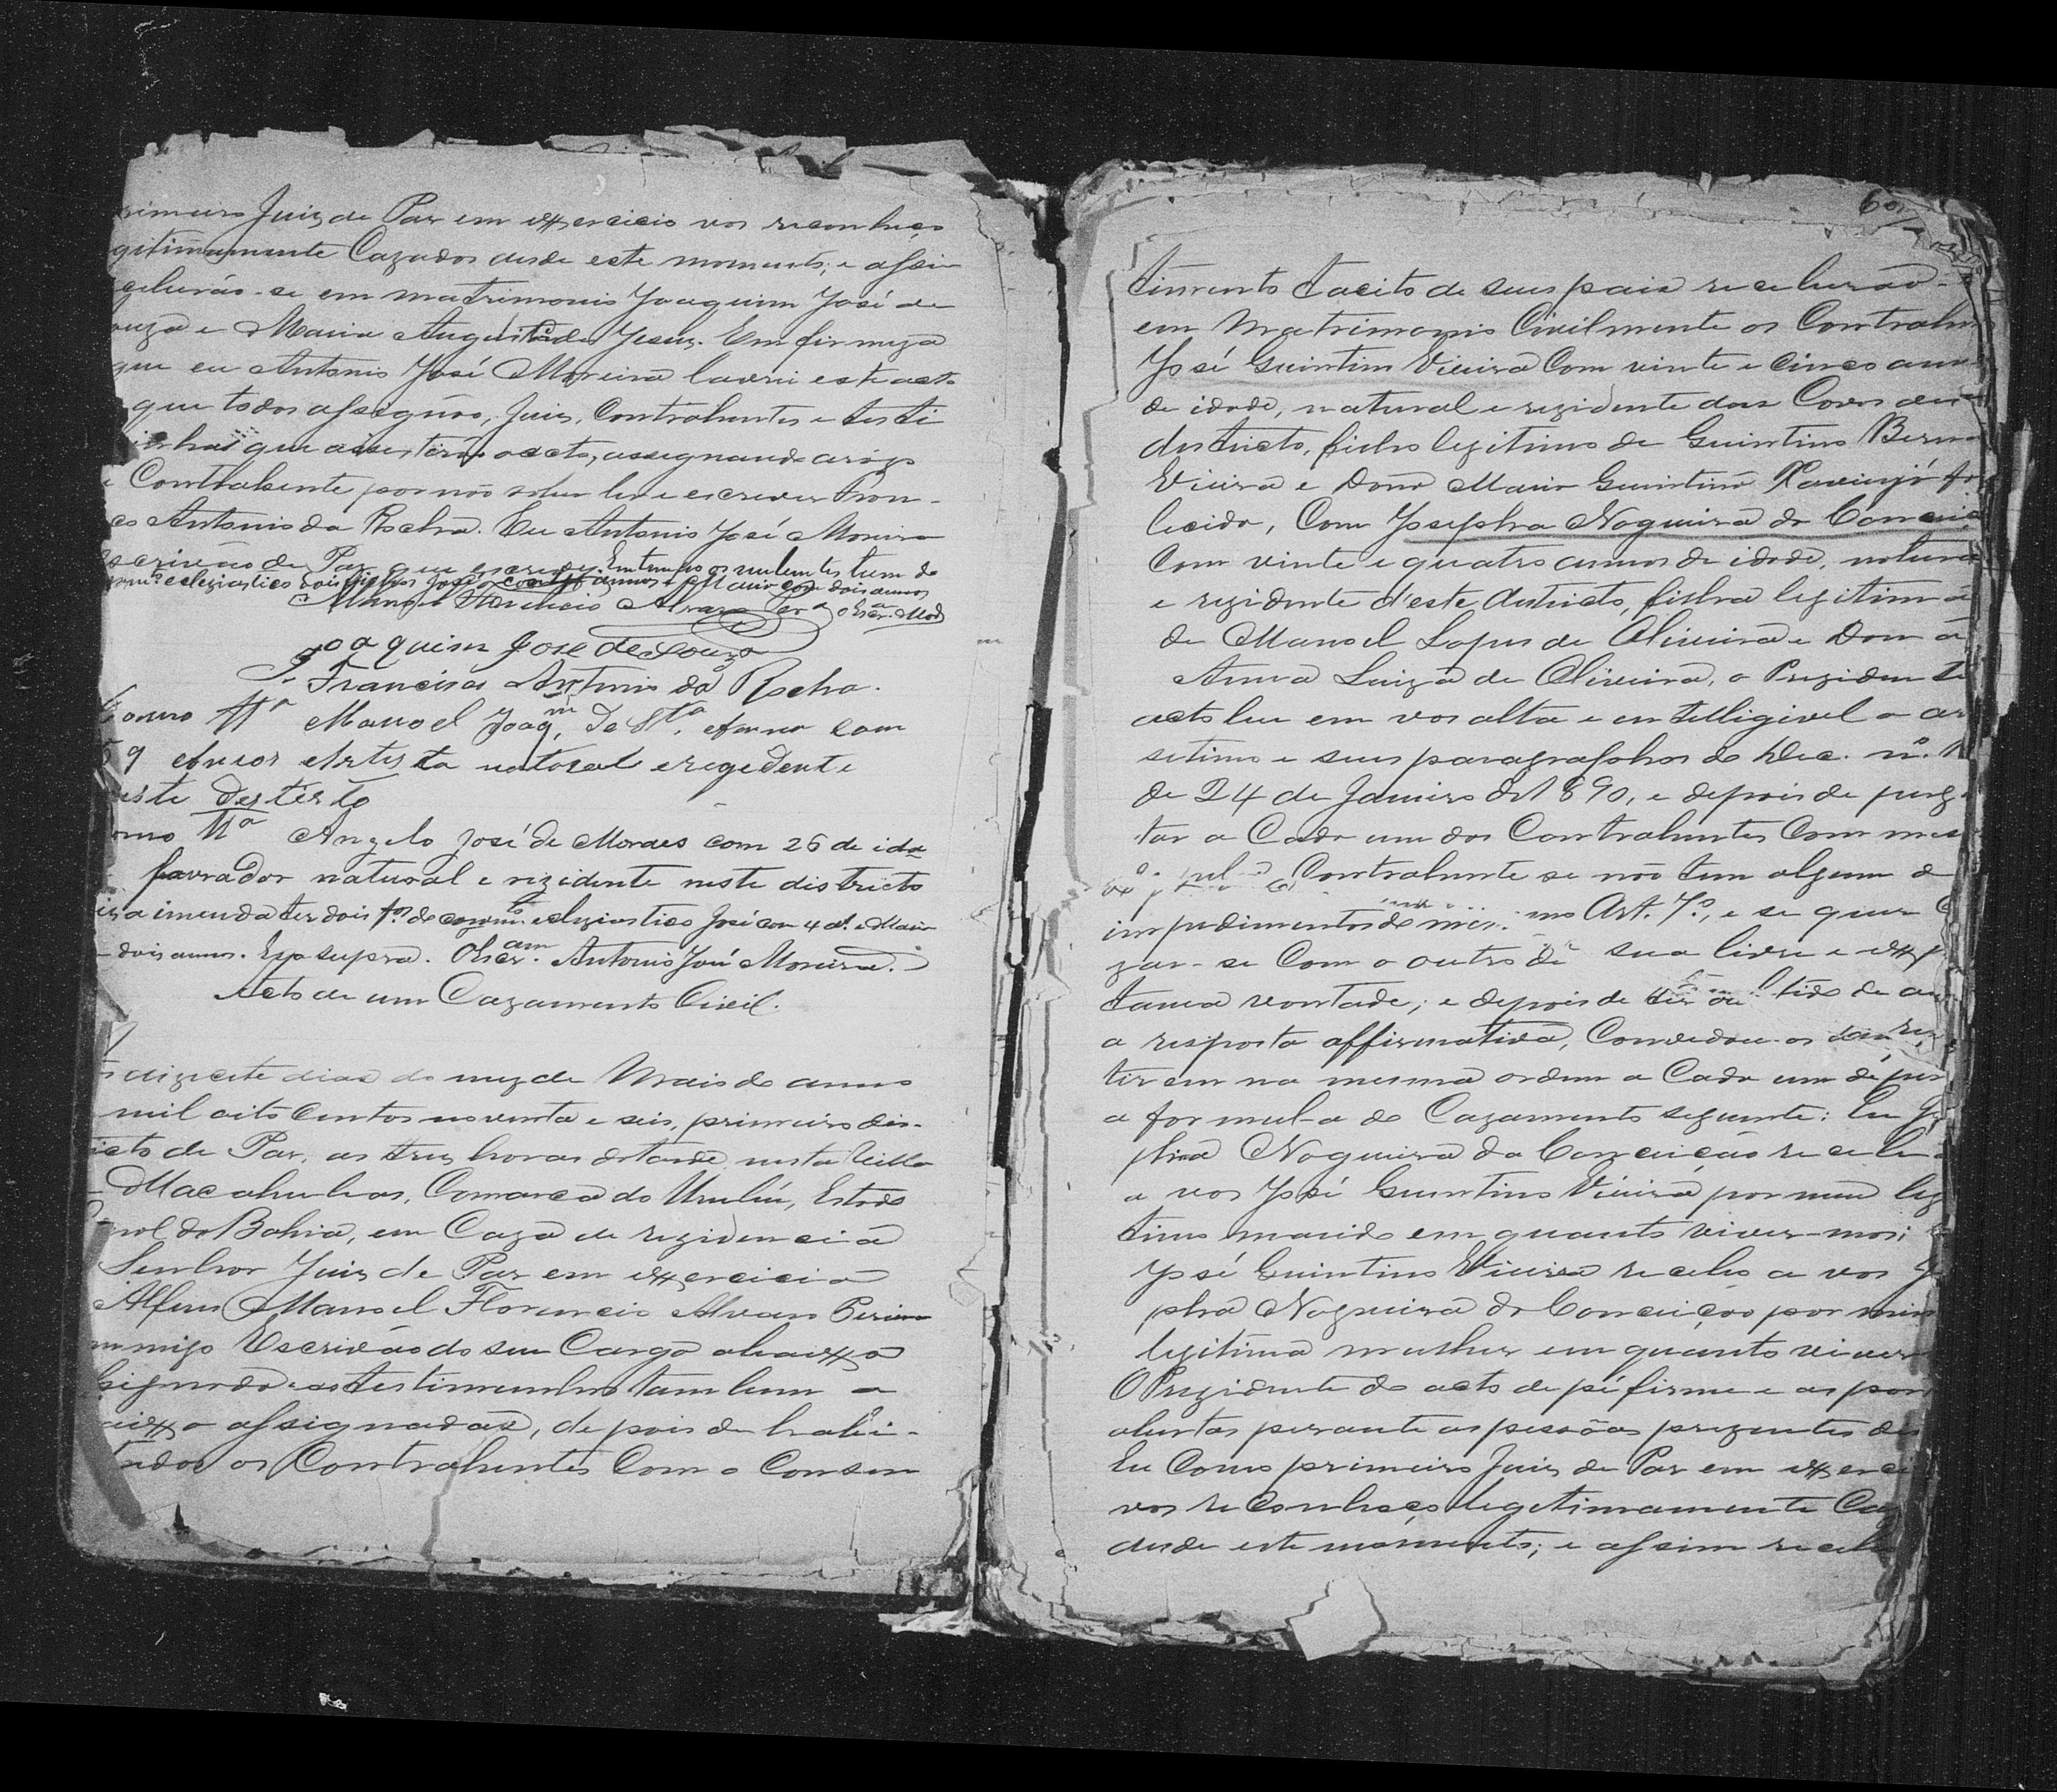 rimeiro Juiz de Paz em exercicio vos reconheço
gitimamente Cazados desde este momento; e assim
ceberão-se em matrimonio Joaquim José de
ouza e Maria Augusta de Jesus. Em firmeza
que eu Antonio José Moreira lavrei este acto
que todos assignão, Juiz, Contrahentes e testi
inhas que assestirão o acto, assignando a rogo
Contrahente por não saber ler e escrever Fran-
co Antonio da Rocha. Eu Antonio José Moreira
scrivão de Paz que escrevy. Em tempo os nubentes tem do
eclesiastico dois filhos José annos e Maria com dois annos
Manoel Florencio Alvares Per.ª o Escr.am Mor.ª
Joaquim José de Souza
Francisco Antonio da Rocha.
Como tt.ª Manoel Joaq.m de St.ª Anna com
59 Annos Artista natoral e rezedente
este destérto
omo tt.ª Angelo José de Moraes com 26 de ida
lavrador natural e rezidente neste districto
a imenda ter dois f.os do cazam.to eclesiastico José com 4 a. e Maria
dois annos. Era supra. O Escr.am Antonio José Moreira.
Acto de um Cazamento Civil.
dizecete dias do mez de Maio do anno
mil oito centos noventa e seis, primeiro dis-
icto de Paz, as tres horas da tarde nesta Villa
Macahubas, Comarca do Urubú, Estado
ral da Bahia, em Caza de rezidencia
Senhor Juiz de Paz em exercicio
Alferes Manoel Florencio Alvares Pereira
mmigo Escrivão do seu Cargo abaixo
signado e as testimunhas tambem a
aixo assignadas, depois de habi-
tados os Contrahentes Com o Consen
60
timento tacito de seus pais receberão-
em Matrimonio Civilmente os Contrahen
José Guintino Vieira Com vinte e cinco ann
de idade, natural e rezidente das Covas deste
destricto, filho legitimo de Guintino Bern
Vieira e Dona Maria Guintina já fa
lecida, Com Josepha Nogueira da Conceiçã
Com vinte e quatro annos de idade, natura
e rezidente d'este destricto, filha legitima
de Manoel Lopes de Oliveira e Dona
Anna Luiza de Oliveira, o Prezidente
acto leu em vos alta e entelligivel o ar
setimo e seus paragraphos do Dec. nº. 1
de 24 de Janeiro de 1890, e depois de perg
tar a Cada um dos Contrahentes Com mes
Contrahente se não tem algum d
impedimentos do mesmo Art. 7º., e se quer C
zar-se Com o outro de sua livre e exp
tania vontade; e depois de ter ouvido de am
a resposta affirmativa, Convedou-os
tirem na mesma ordem a Cada um de per
a formula do Cazamento seguinte: Eu Jo
pha Nogueira da Conceição recebo
a vos José Guintino Vieira por meu leg
timo marido em quanto viver-mos;
José Guintino Vieira recebo a vos Jo
pha Nogueira da Conceição por min
legitima mulher em quanto viver
O Prezidente do acto de pé firme e as por
abertas perante as pessôas prezentes di
Eu Como primeiro Juiz de Paz em exerci
vos reconheço legetimamente Caz
desde este momento; e assim receb